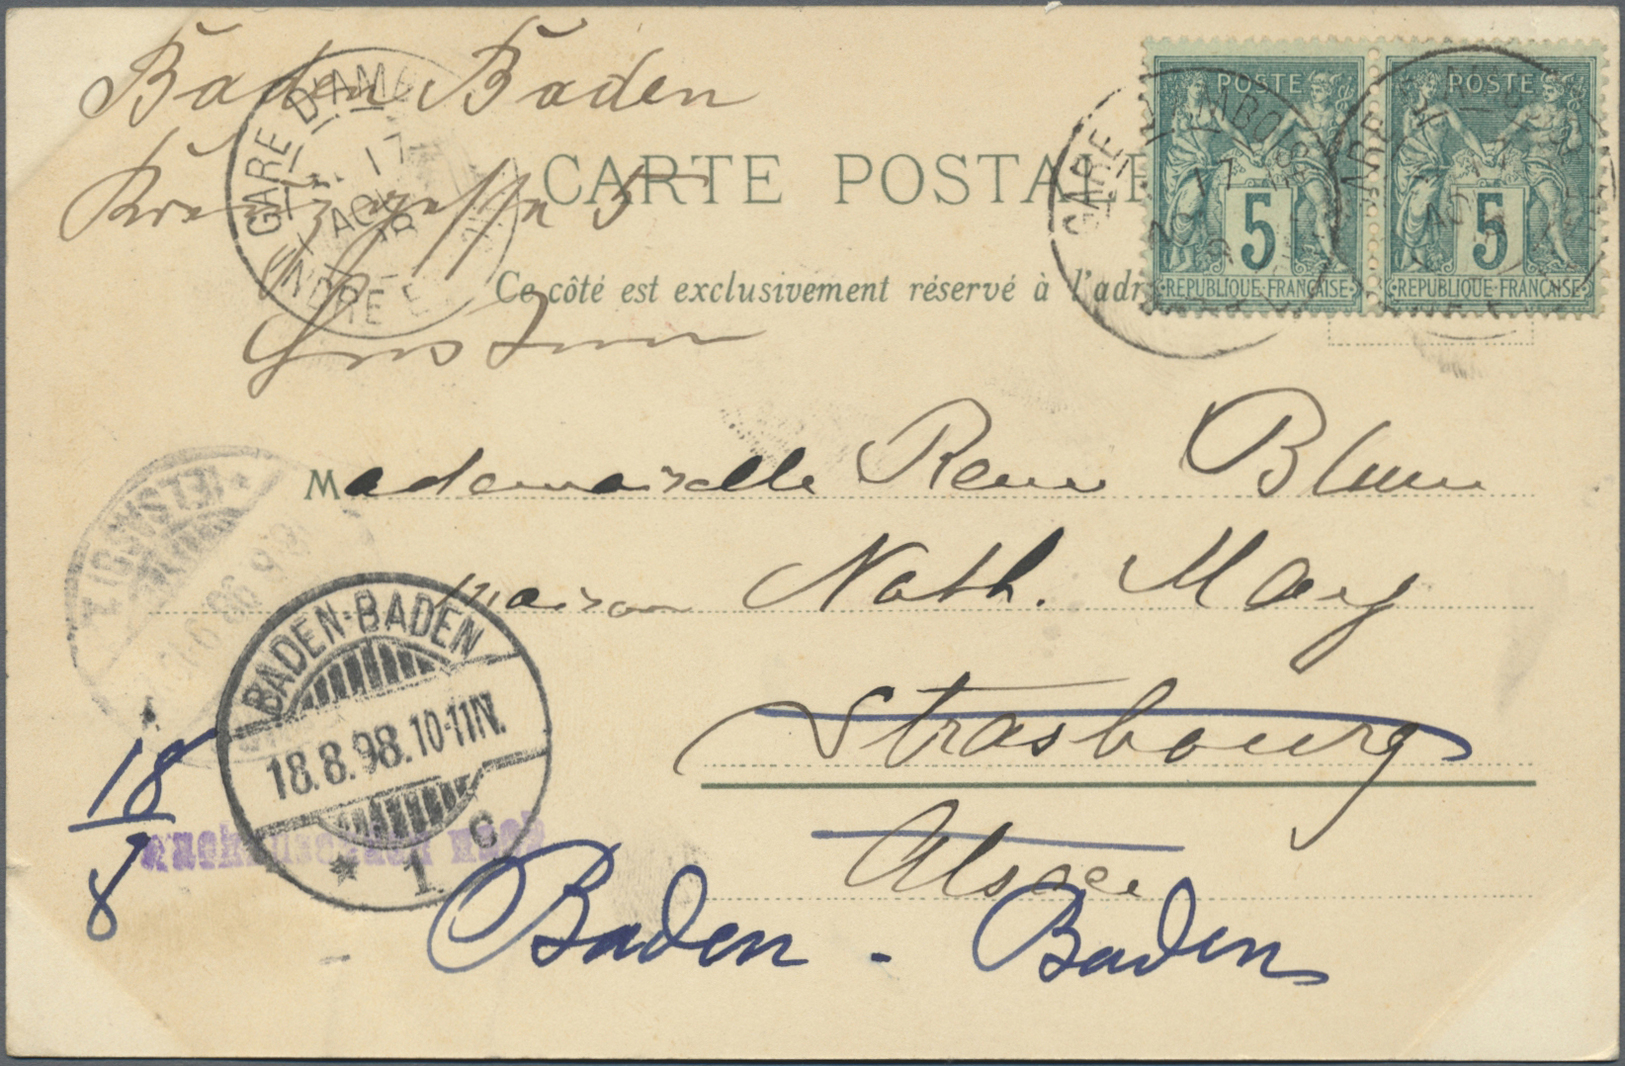 Baden Baden
5
CARTE POSTALE
Ce côté est exclusivement réservé à l'adr
POSTE
5
REPUBLIQUE FRANÇAISE
POSTE
5
REPUBLIQUE FRANÇAISE
GARE D'AMB
17
AOUT
INDRE E
GARE
17
Mademoiselle Blum
maison Nath. May
Strasbourg
Alsace
BADEN-BADEN
18.8.98.10-11N.
* 1 c
18
8
Baden - Baden